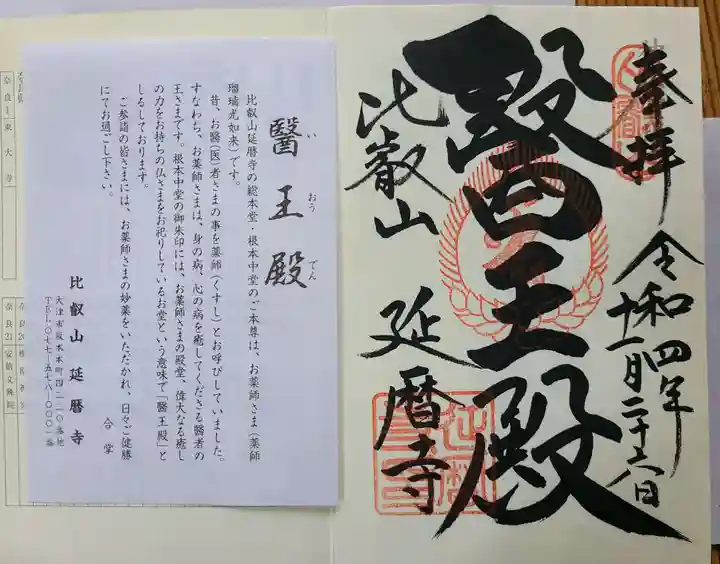 奉拝
令和四年
十一月二十六日
醫王殿
比叡山
延暦寺
醫王殿
い おう でん
比叡山延暦寺の総本堂・根本中堂のご本尊は、お薬師さま(薬師
瑠璃光如来)です。
昔、お醫(医)者さまの事を薬師(くすし)とお呼びしていました。
すなわち、お薬師さまは、身の病、心の病を癒してくださる醫者の
王さまです。根本中堂の御朱印には、お薬師さまの殿堂、偉大なる癒し
の力をお持ちの仏さまをお祀りしているお堂という意味で「醫王殿」と
しるしております。
ご参詣の皆さまには、お薬師さまの妙薬をいただかれ、日々ご健勝
にてお過ごし下さい。
合掌
比叡山延暦寺
大津市坂本本町四二二〇番地
TEL〇七七-五七八-〇〇〇一番
奈良1 東大寺
奈良21 安倍文殊院